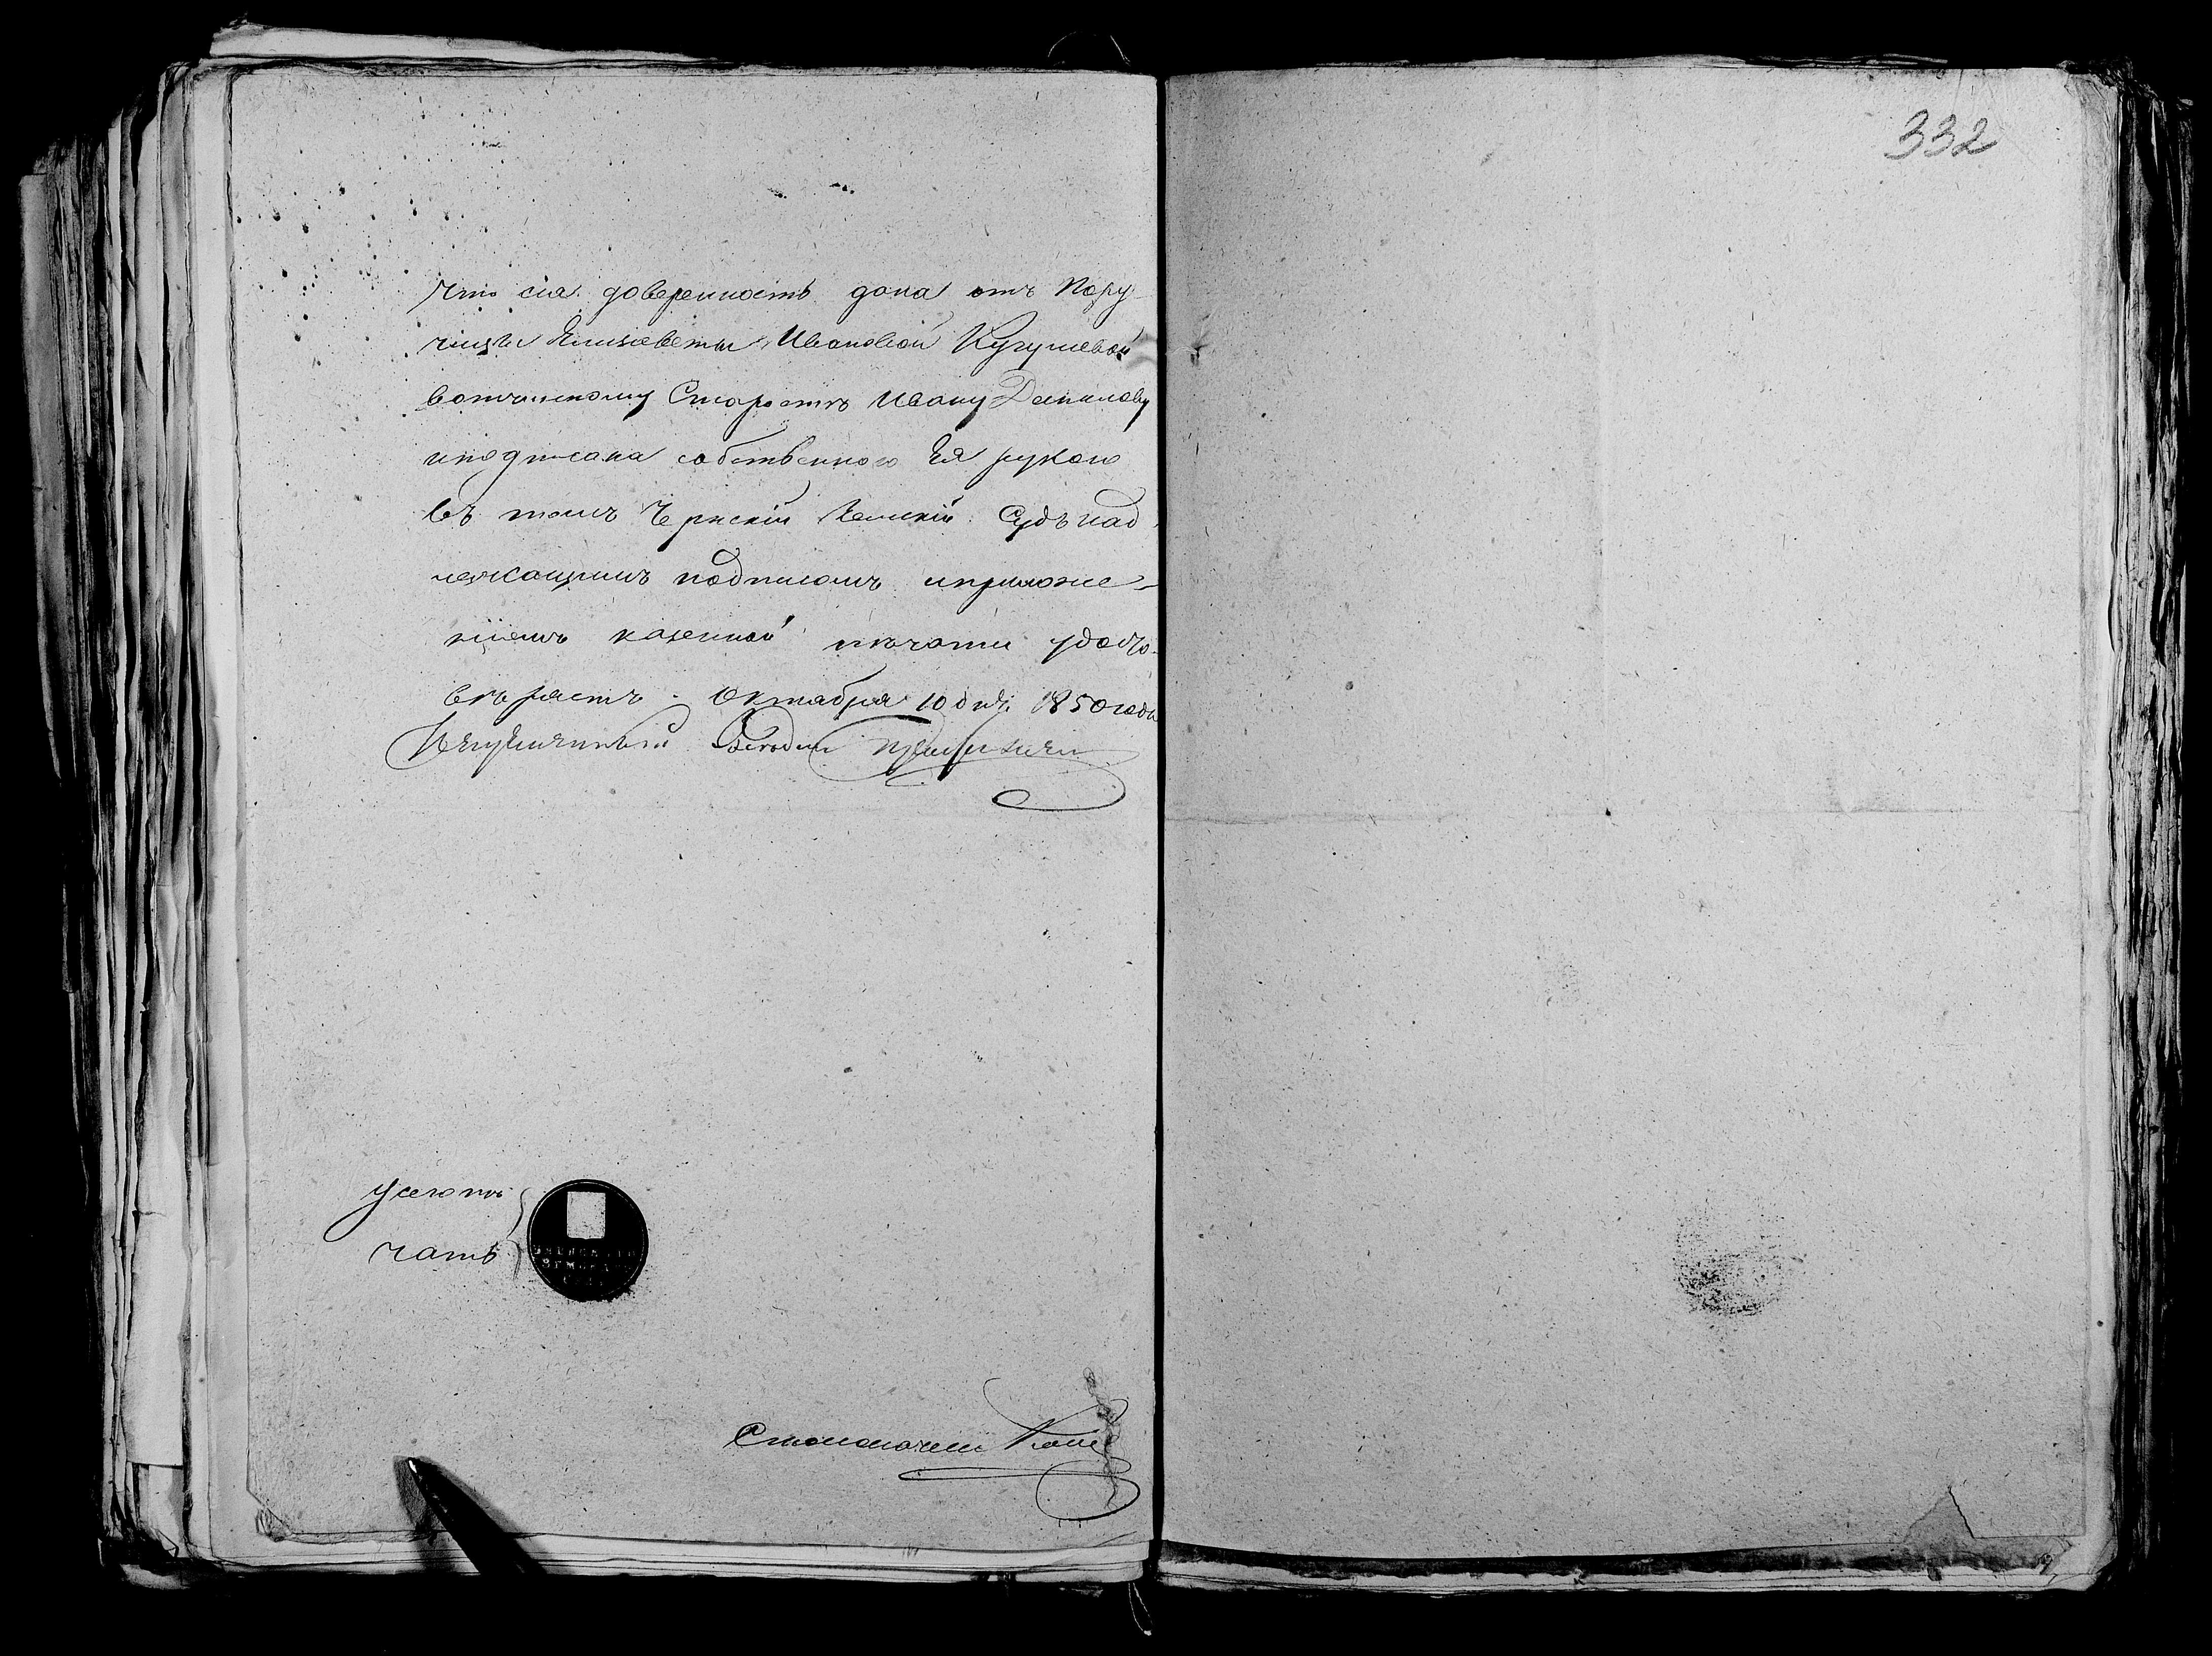 332
что сія доверенность дана отъ Пору-
чицы Елизаветы Ивановой Кугушевой
вотчинному Старосте Ивану Данилову
и подписана собственною Ея рукою
въ томъ Чернскій Земскій Судъ над-
лежащимъ подписомъ и приложе-
ніемъ казенной печати удосто-
веряетъ. Октября 10 дня 1850 года
Непременный
У сего пе-
чать
ЗЕМСКАГО
Столоначальн.